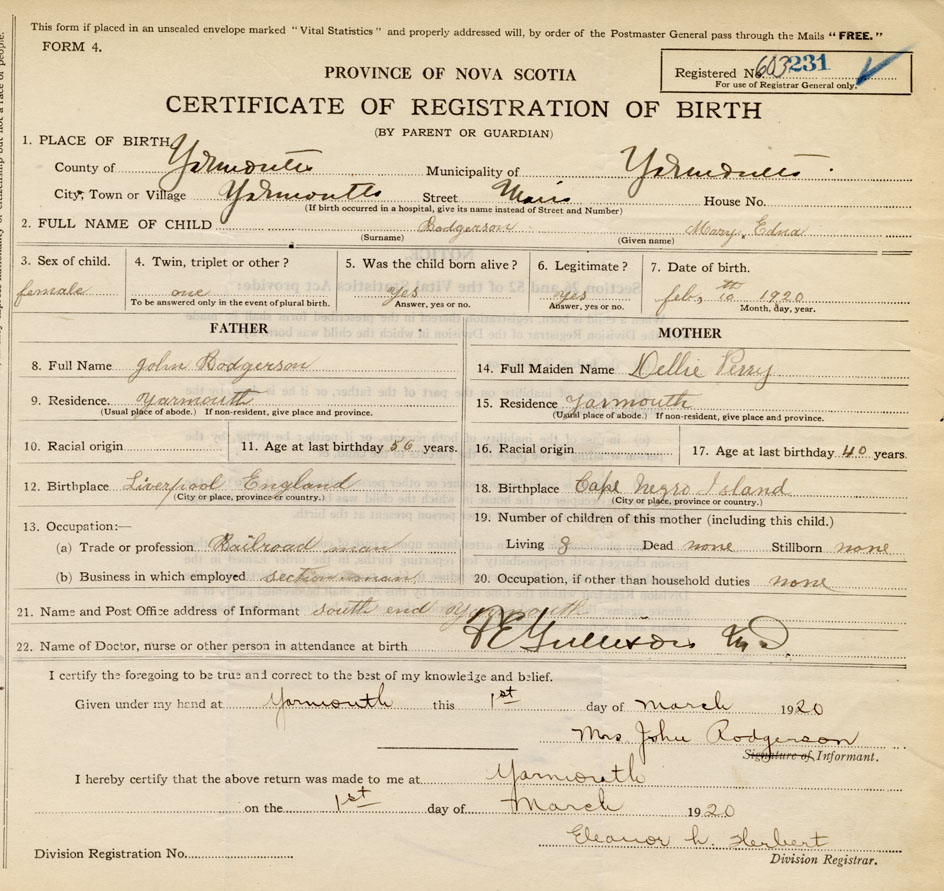 This form if placed in an unsealed envelope marked "Vital Statistics" and properly addressed will, by order of the Postmaster General pass through the Mails "FREE."
FORM 4.
PROVINCE OF NOVA SCOTIA
Registered No. 603231
For use of Registrar General only.
CERTIFICATE OF REGISTRATION OF BIRTH
(BY PARENT OR GUARDIAN)
1. PLACE OF BIRTH
County of Yarmouth Municipality of Yarmouth
City, Town or Village Yarmouth Street Main House No.
(If birth occurred in a hospital, give its name instead of Street and Number)
2. FULL NAME OF CHILD Rodgerson Mary, Edna
(Surname) (Given name)
3. Sex of child. 4. Twin, triplet or other? 5. Was the child born alive? 6. Legitimate? 7. Date of birth.
female one yes yes feb, 10th 1920
To be answered only in the event of plural birth. Answer, yes or no. Answer, yes or no. Month, day, year.
FATHER MOTHER
8. Full Name John Rodgerson 14. Full Maiden Name Dellie Perry
9. Residence. Yarmouth 15. Residence Yarmouth
(Usual place of abode.) If non-resident, give place and province. (Usual place of abode.) If non-resident, give place and province.
10. Racial origin 11. Age at last birthday 56 years. 16. Racial origin 17. Age at last birthday 40 years.
12. Birthplace Liverpool England 18. Birthplace Cape Negro Island
(City or place, province or country.) (City or place, province or country.)
13. Occupation:— 19. Number of children of this mother (including this child.)
(a) Trade or profession Railroad man Living 8 Dead none Stillborn none
(b) Business in which employed section man 20. Occupation, if other than household duties none
21. Name and Post Office address of Informant south end Yarmouth
22. Name of Doctor, nurse or other person in attendance at birth
I certify the foregoing to be true and correct to the best of my knowledge and belief.
Given under my hand at Yarmouth this 1st day of March 1920
Mrs John Rodgerson
Signature of Informant.
I hereby certify that the above return was made to me at Yarmouth
on the 1st day of March 1920
Eleanor h. Herbert
Division Registration No. Division Registrar.